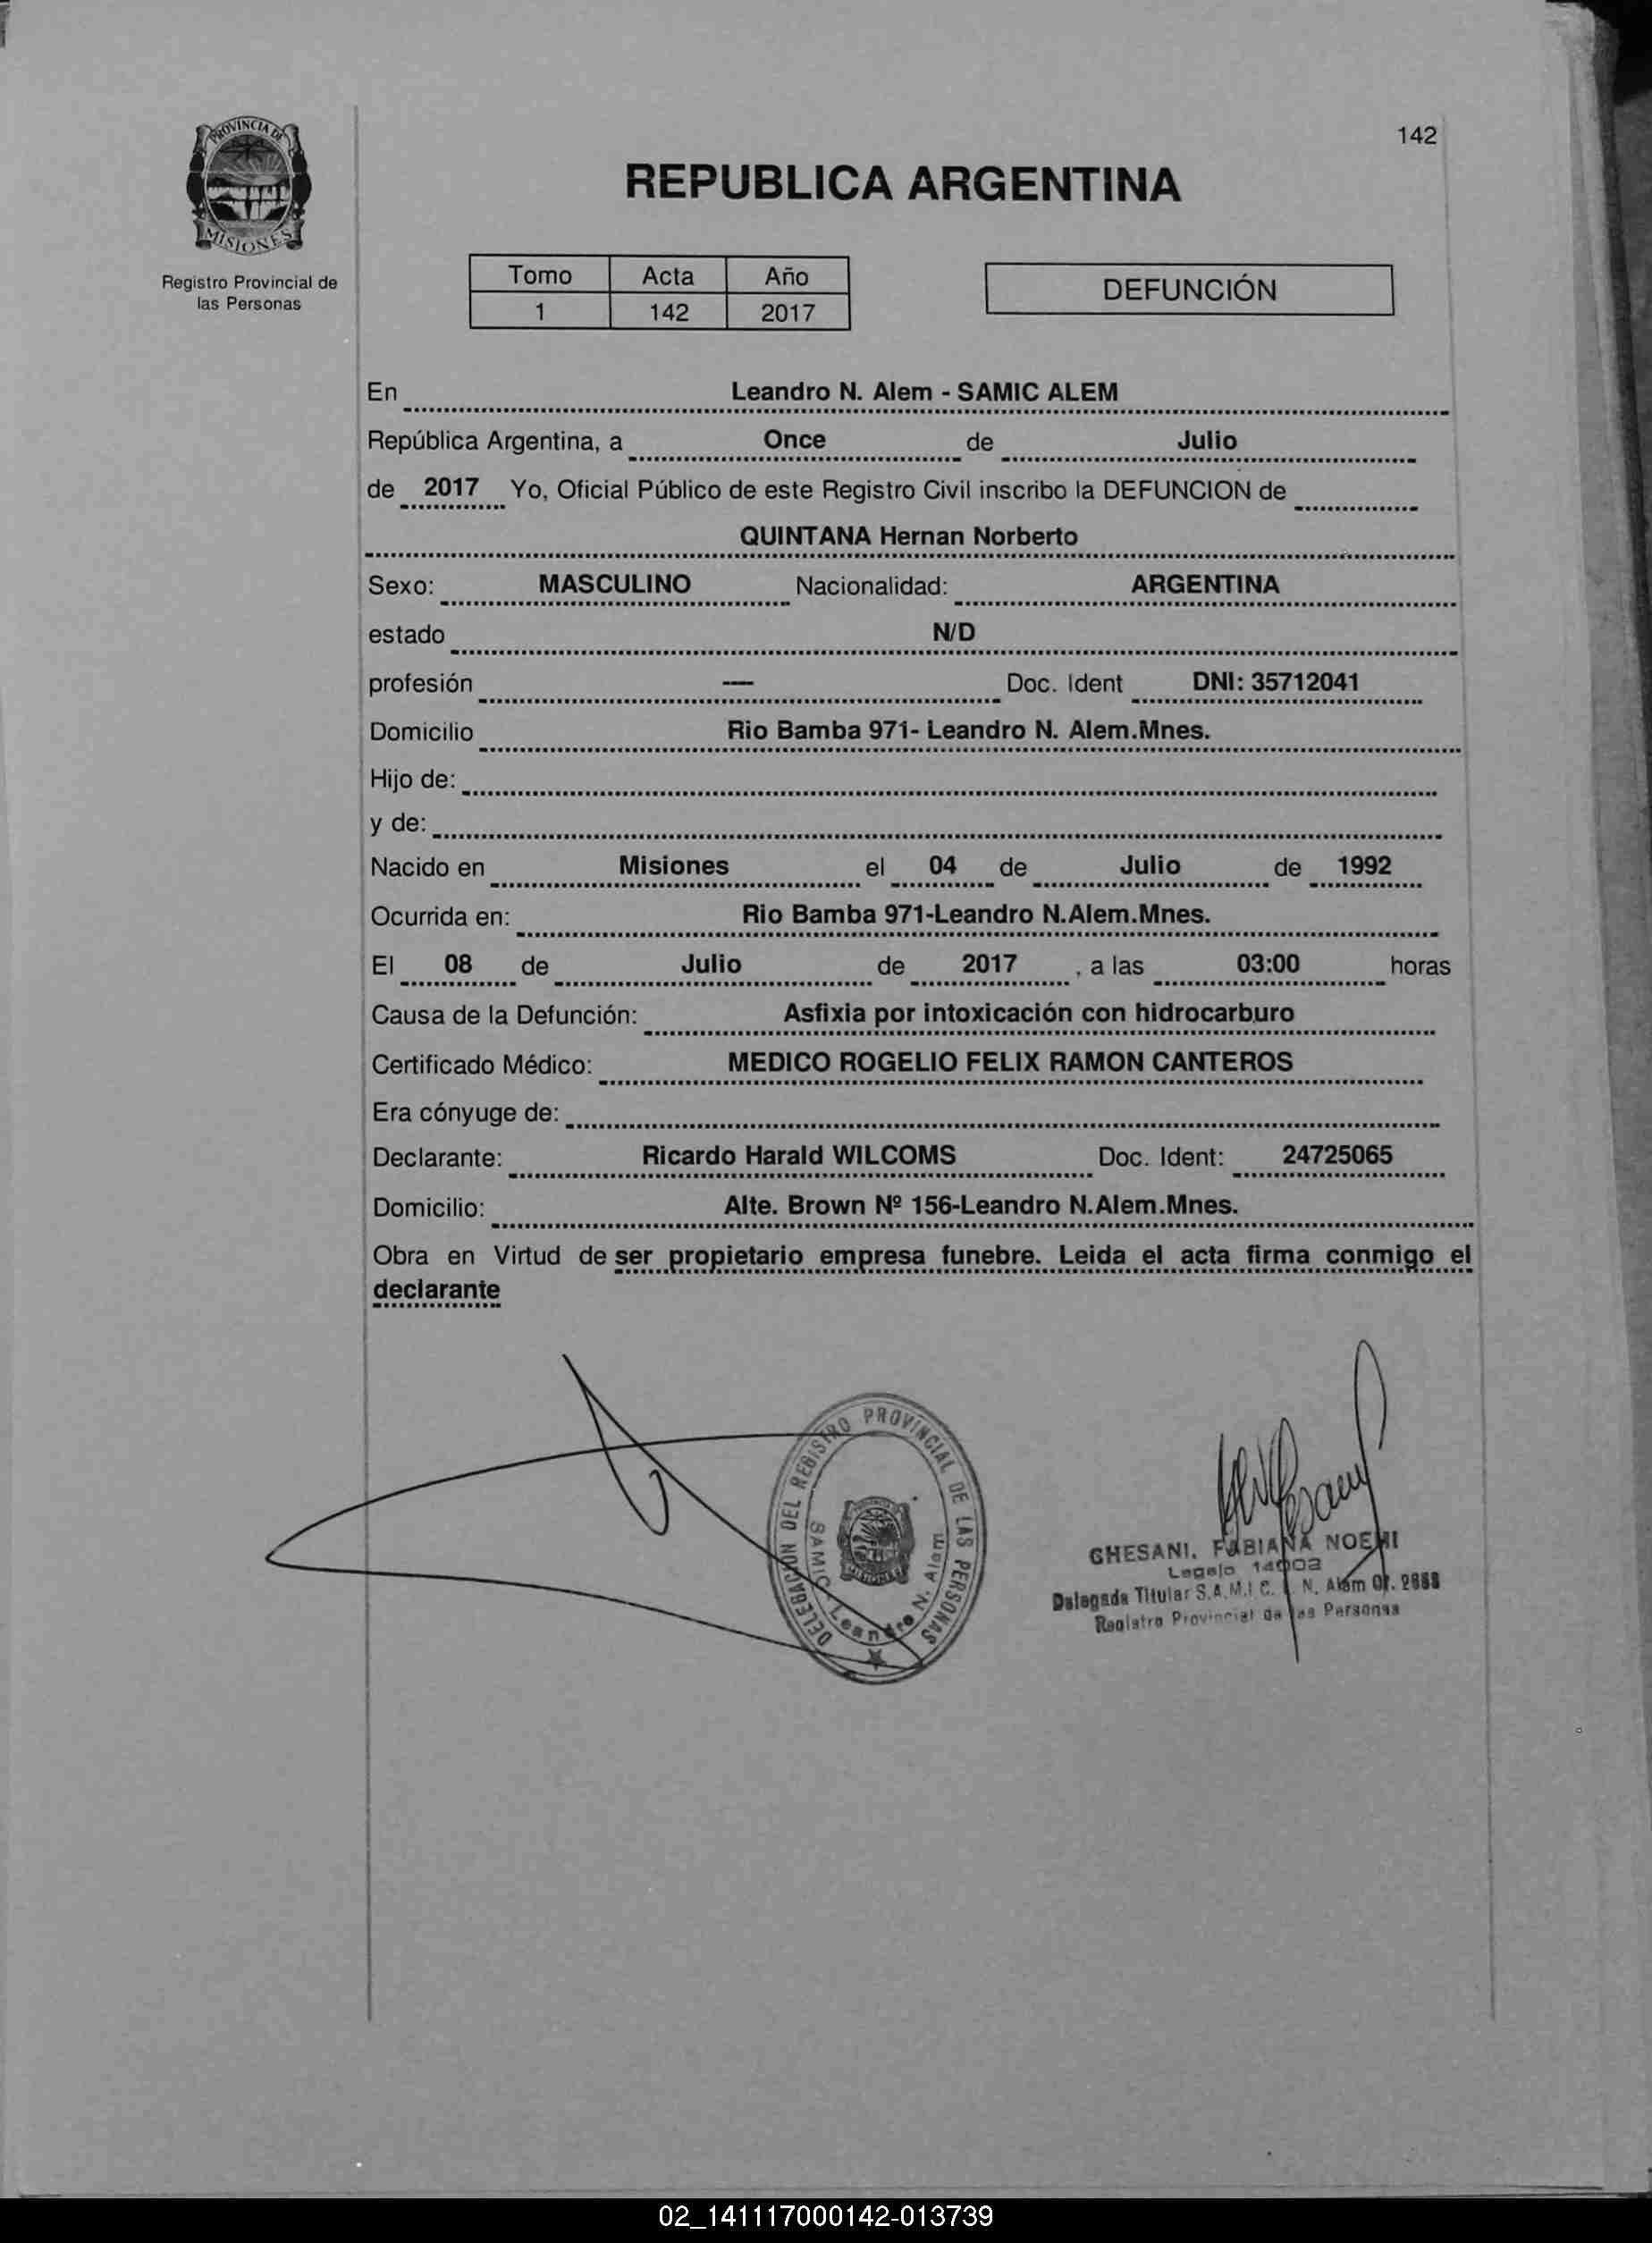 142
PROVINCIA DE
MISIONES
REPUBLICA ARGENTINA
Registro Provincial de
las Personas
Tomo Acta Año
1 142 2017
DEFUNCIÓN
En Leandro N. Alem - SAMIC ALEM
República Argentina, a Once de Julio
de 2017 Yo, Oficial Público de este Registro Civil inscribo la DEFUNCION de
QUINTANA Hernan Norberto
Sexo: MASCULINO Nacionalidad: ARGENTINA
estado N/D
profesión --- Doc. Ident DNI: 35712041
Domicilio Rio Bamba 971- Leandro N. Alem.Mnes.
Hijo de:
y de:
Nacido en Misiones el 04 de Julio de 1992
Ocurrida en: Rio Bamba 971-Leandro N.Alem.Mnes.
El 08 de Julio de 2017 , a las 03:00 horas
Causa de la Defunción: Asfixia por intoxicación con hidrocarburo
Certificado Médico: MEDICO ROGELIO FELIX RAMON CANTEROS
Era cónyuge de:
Declarante: Ricardo Harald WILCOMS Doc. Ident: 24725065
Domicilio: Alte. Brown Nº 156-Leandro N.Alem.Mnes.
Obra en Virtud de ser propietario empresa funebre. Leida el acta firma conmigo el
declarante
DELEGACION DEL REGISTRO PROVINCIAL DE LAS PERSONAS
SAMIC - Leandro N. Alem
GHESANI, FABIANA NOEMI
Legajo
Delegada Titular S.A.M.I.C. L. N. Alem Of. 2688
Registro Provincial de las Personas
02_141117000142-013739